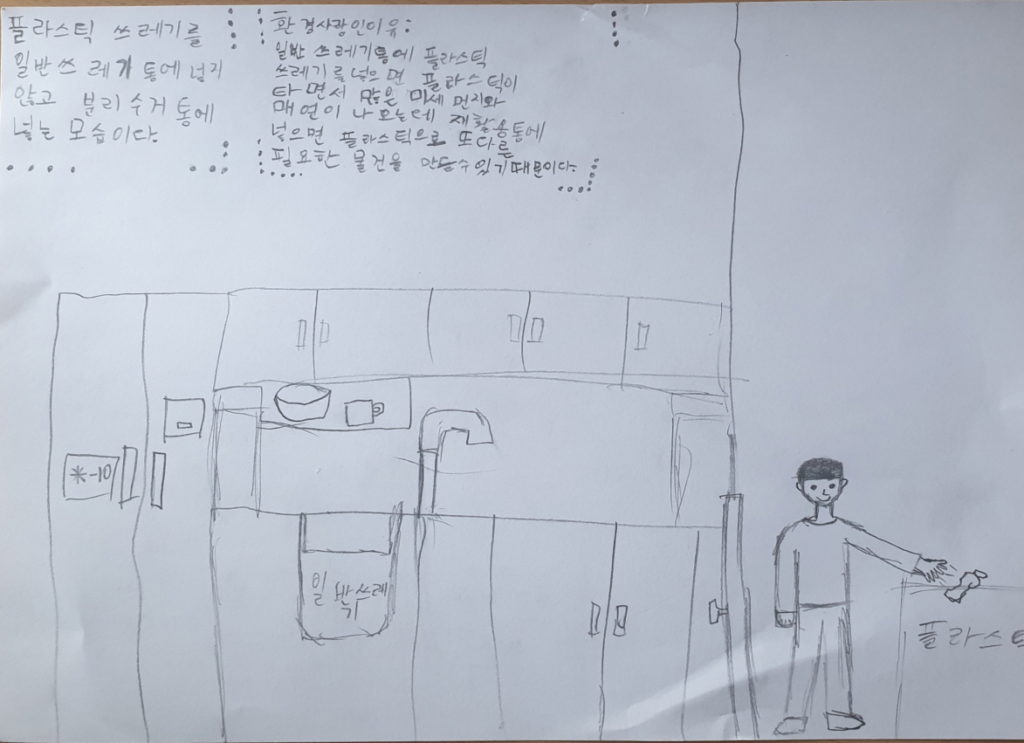 플라스틱 쓰레기를
일반쓰레기통에 넣지
않고 분리수거통에
넣는 모습이다.
환경사랑인이유:
일반 쓰레기통에 플라스틱
쓰레기를 넣으면 플라스틱이
타면서 많은 미세먼지와
매연이 나오는데 재활용통에
넣으면 플라스틱으로 또다른
필요한 물건을 만들수있기때문이다.
*-10
일반쓰레
기
플라스틱